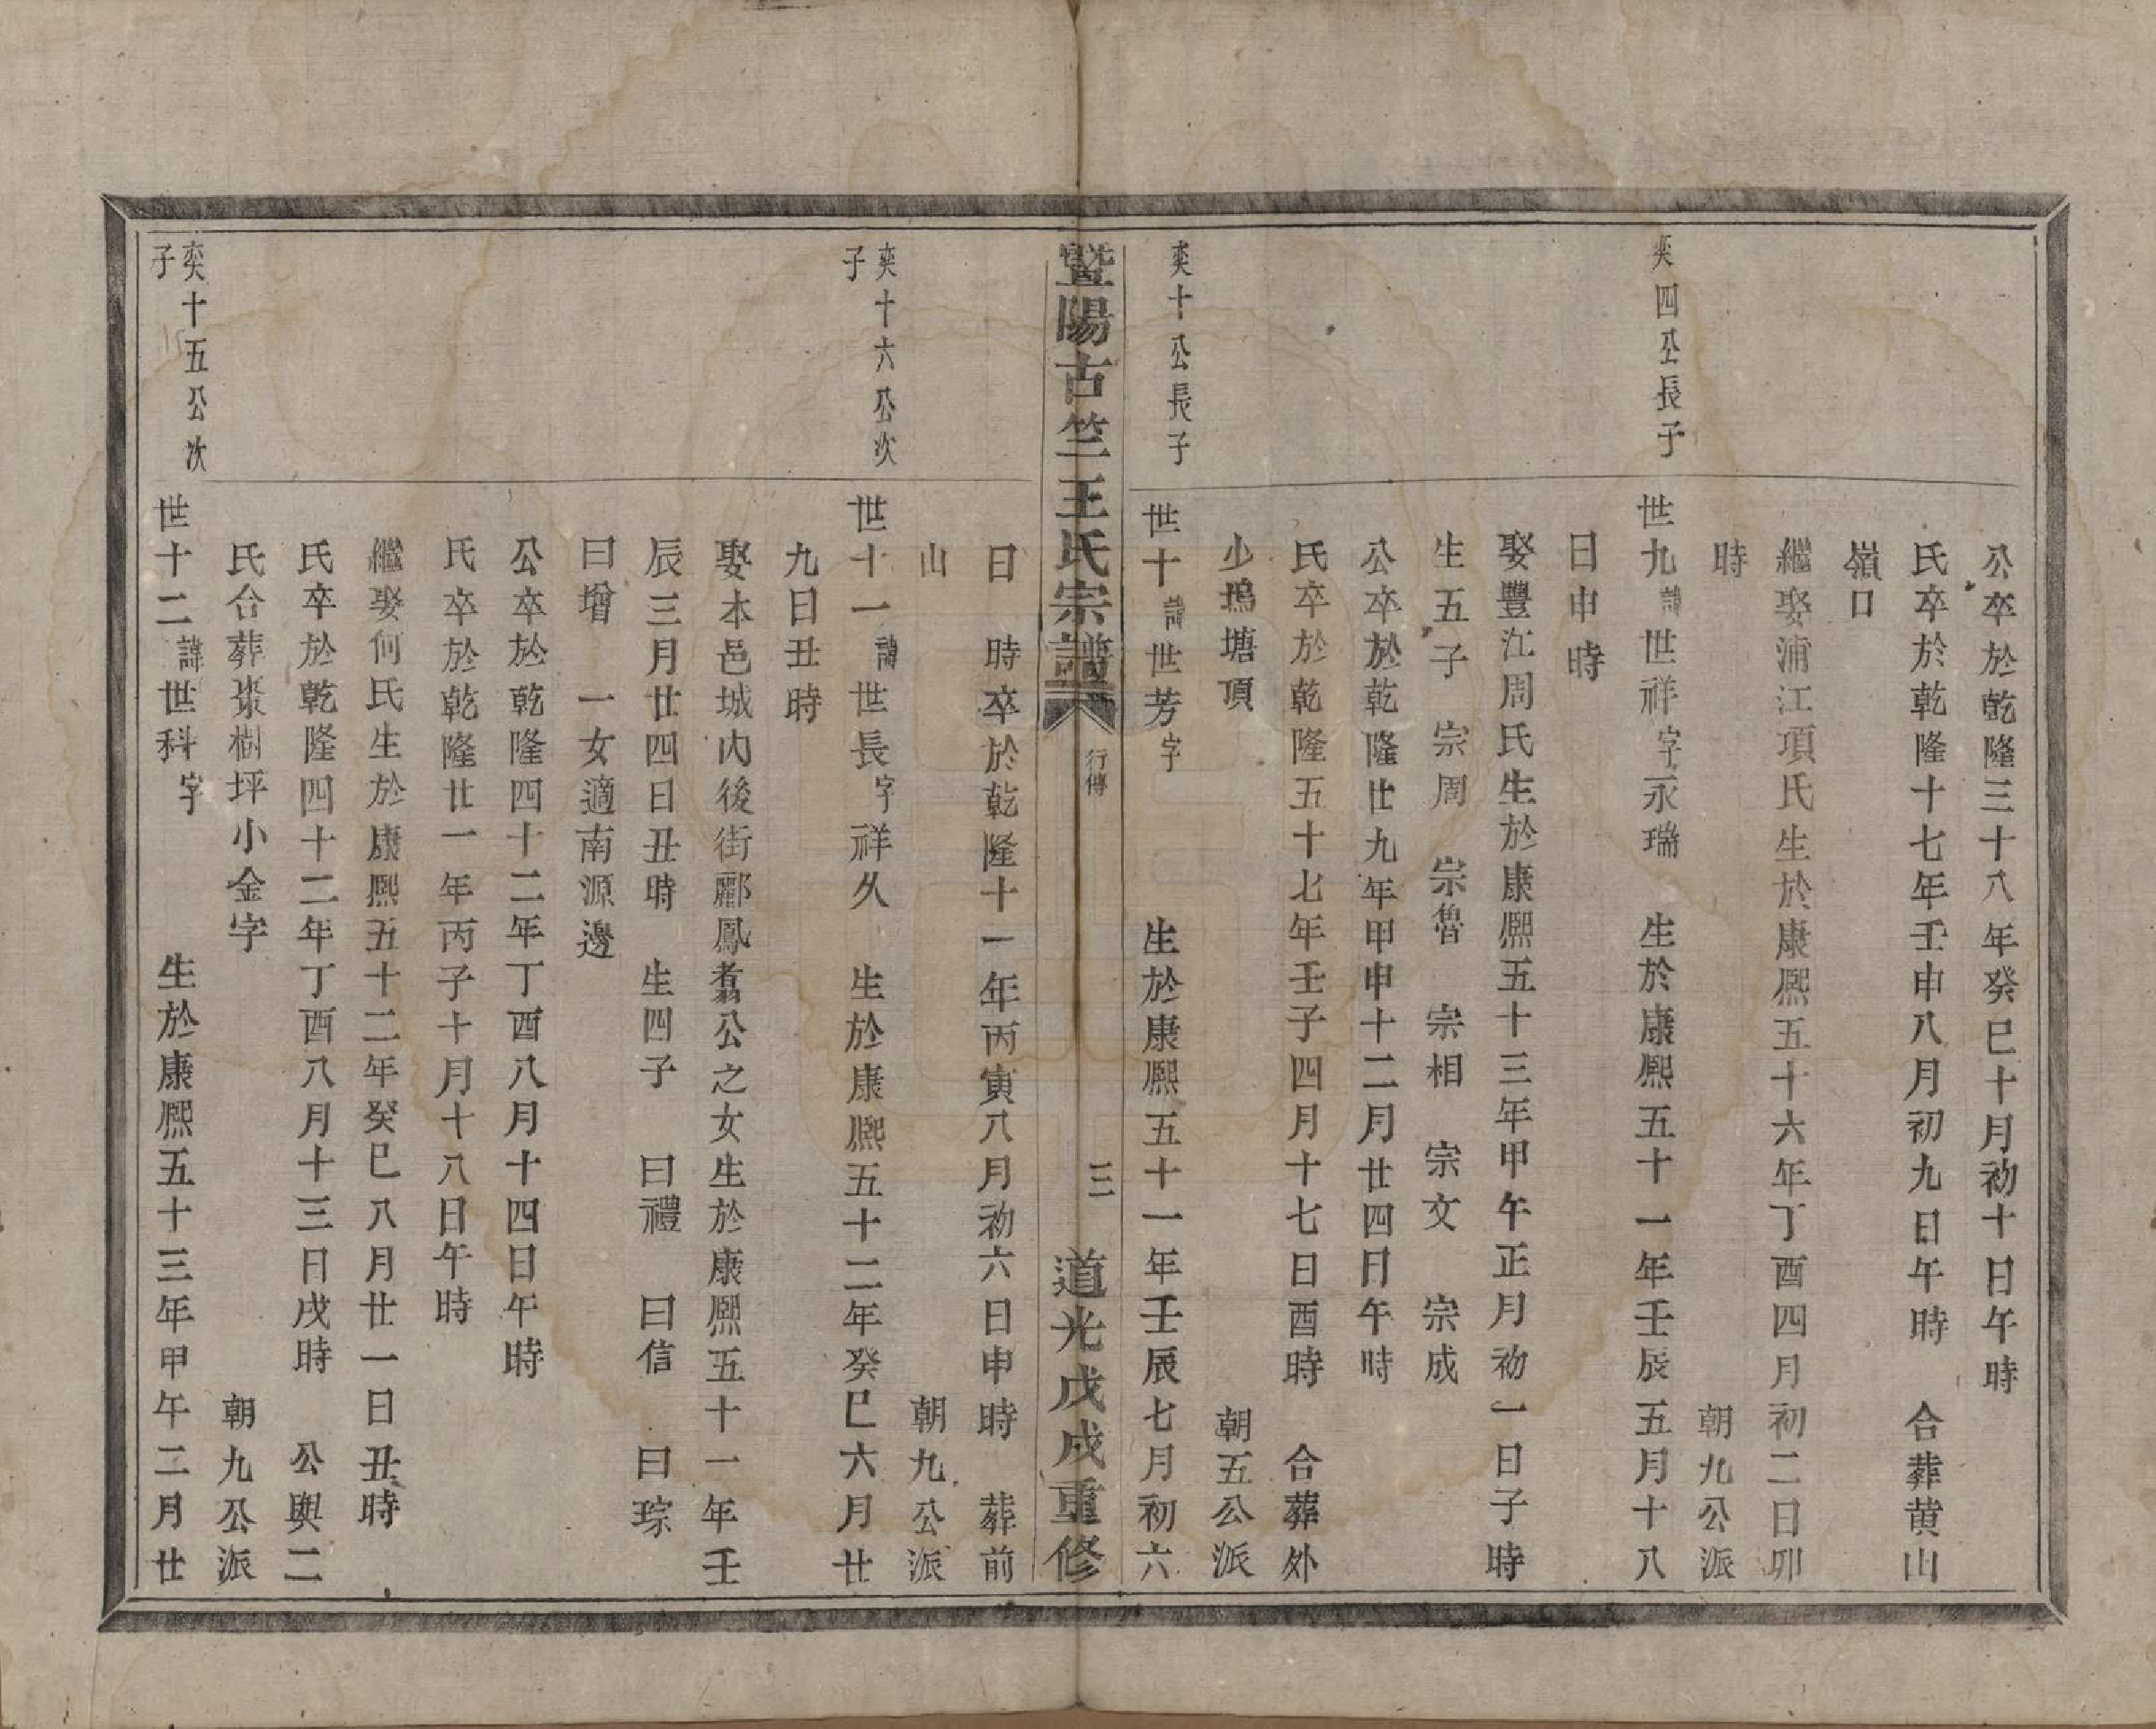 公卒於乾隆三十八年癸巳十月初十日午時
氏卒於乾隆十七年壬申八月初九日午時　合葬黄山
嶺口
繼娶浦江項氏生於康熙五十六年丁酉四月初二日卯
時　朝九公派
奕四公長子
世九諱世祥字永瑞　生於康熙五十一年壬辰五月十八
日申時
娶豐江周氏生於康熙五十三年甲午正月初一日子時
生五子　宗周　宗魯　宗相　宗文　宗成
公卒於乾隆廿九年甲申十二月廿四日午時
氏卒於乾隆五十七年壬子四月十七日酉時　合葬外
少塢塘頂　朝五公派
奕十公長子
世十諱世芳字　生於康熙五十一年壬辰七月初六
暨陽古竺王氏宗譜　行傳　三　道光戊戌重修
日　時卒於乾隆十一年丙寅八月初六日申時　葬前
山　朝九公派
奕十六公次
子
世十一諱世長字祥久　生於康熙五十二年癸巳六月廿
九日丑時
娶本邑城內後街酈鳳翥公之女生於康熙五十一年壬
辰三月廿四日丑時　生四子　曰禮　曰信　曰琮
曰增　一女適南源邊
公卒於乾隆四十二年丁酉八月十四日午時
氏卒於乾隆廿一年丙子十月十八日午時
繼娶何氏生於康熙五十二年癸巳八月廿一日丑時
氏卒於乾隆四十二年丁酉八月十三日戌時　公與二
氏合葬棗樹坪小金字　朝九公派
奕十五公次
子
世十二諱世科字　生於康熙五十三年甲午二月廿